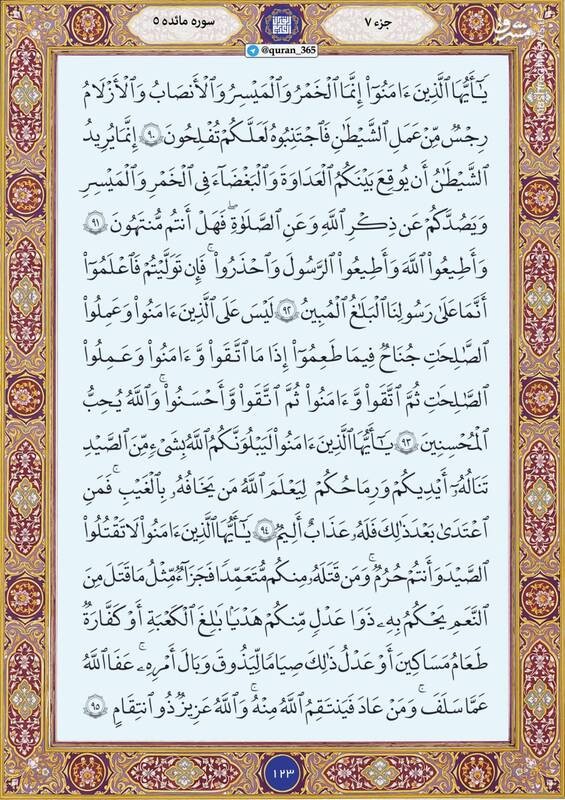 جزء ۷
سوره مائده ۵
@quran_365
مشرق
يَٰٓأَيُّهَا ٱلَّذِينَ ءَامَنُوٓاْ إِنَّمَا ٱلۡخَمۡرُ وَٱلۡمَيۡسِرُ وَٱلۡأَنصَابُ وَٱلۡأَزۡلَٰمُ
رِجۡسٞ مِّنۡ عَمَلِ ٱلشَّيۡطَٰنِ فَٱجۡتَنِبُوهُ لَعَلَّكُمۡ تُفۡلِحُونَ ۹۰ إِنَّمَا يُرِيدُ
ٱلشَّيۡطَٰنُ أَن يُوقِعَ بَيۡنَكُمُ ٱلۡعَدَٰوَةَ وَٱلۡبَغۡضَآءَ فِي ٱلۡخَمۡرِ وَٱلۡمَيۡسِرِ
وَيَصُدَّكُمۡ عَن ذِكۡرِ ٱللَّهِ وَعَنِ ٱلصَّلَوٰةِۖ فَهَلۡ أَنتُم مُّنتَهُونَ ۹۱
وَأَطِيعُواْ ٱللَّهَ وَأَطِيعُواْ ٱلرَّسُولَ وَٱحۡذَرُواْۚ فَإِن تَوَلَّيۡتُمۡ فَٱعۡلَمُوٓاْ
أَنَّمَا عَلَىٰ رَسُولِنَا ٱلۡبَلَٰغُ ٱلۡمُبِينُ ۹۲ لَيۡسَ عَلَى ٱلَّذِينَ ءَامَنُواْ وَعَمِلُواْ
ٱلصَّٰلِحَٰتِ جُنَاحٞ فِيمَا طَعِمُوٓاْ إِذَا مَا ٱتَّقَواْ وَّءَامَنُواْ وَعَمِلُواْ
ٱلصَّٰلِحَٰتِ ثُمَّ ٱتَّقَواْ وَّءَامَنُواْ ثُمَّ ٱتَّقَواْ وَّأَحۡسَنُواْۚ وَٱللَّهُ يُحِبُّ
ٱلۡمُحۡسِنِينَ ۹۳ يَٰٓأَيُّهَا ٱلَّذِينَ ءَامَنُواْ لَيَبۡلُوَنَّكُمُ ٱللَّهُ بِشَيۡءٖ مِّنَ ٱلصَّيۡدِ
تَنَالُهُۥٓ أَيۡدِيكُمۡ وَرِمَاحُكُمۡ لِيَعۡلَمَ ٱللَّهُ مَن يَخَافُهُۥ بِٱلۡغَيۡبِۚ فَمَنِ
ٱعۡتَدَىٰ بَعۡدَ ذَٰلِكَ فَلَهُۥ عَذَابٌ أَلِيمٞ ۹۴ يَٰٓأَيُّهَا ٱلَّذِينَ ءَامَنُواْ لَا تَقۡتُلُواْ
ٱلصَّيۡدَ وَأَنتُمۡ حُرُمٞۚ وَمَن قَتَلَهُۥ مِنكُم مُّتَعَمِّدٗا فَجَزَآءٞ مِّثۡلُ مَا قَتَلَ مِنَ
ٱلنَّعَمِ يَحۡكُمُ بِهِۦ ذَوَا عَدۡلٖ مِّنكُمۡ هَدۡيَۢا بَٰلِغَ ٱلۡكَعۡبَةِ أَوۡ كَفَّٰرَةٞ
طَعَامُ مَسَٰكِينَ أَوۡ عَدۡلُ ذَٰلِكَ صِيَامٗا لِّيَذُوقَ وَبَالَ أَمۡرِهِۦۗ عَفَا ٱللَّهُ
عَمَّا سَلَفَۚ وَمَنۡ عَادَ فَيَنتَقِمُ ٱللَّهُ مِنۡهُۚ وَٱللَّهُ عَزِيزٞ ذُو ٱنتِقَامٍ ۹۵
۱۲۳